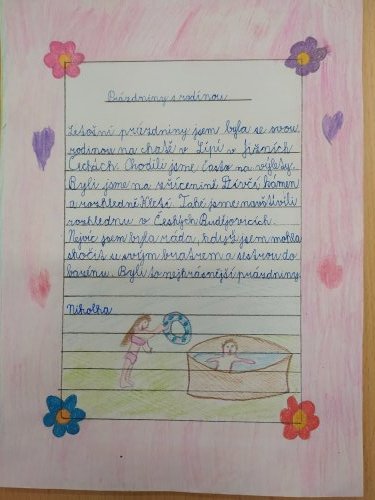 Prázdniny s rodinou
Letošní prázdniny jsem byla se svou
rodinou na chatě v Lípí v Jižních
Čechách. Chodili jsme často na výlety.
Byli jsme na zřícenině Dívčí kámen
a rozhledně Kleť. Také jsme navštívili
rozhlednu v Českých Budějovicích.
Nejvíc jsem byla ráda, když jsem mohla
skočit s svým bratrem a sestrou do
bazénu. Byli to nejkrásnější prázdniny.
Nikolka